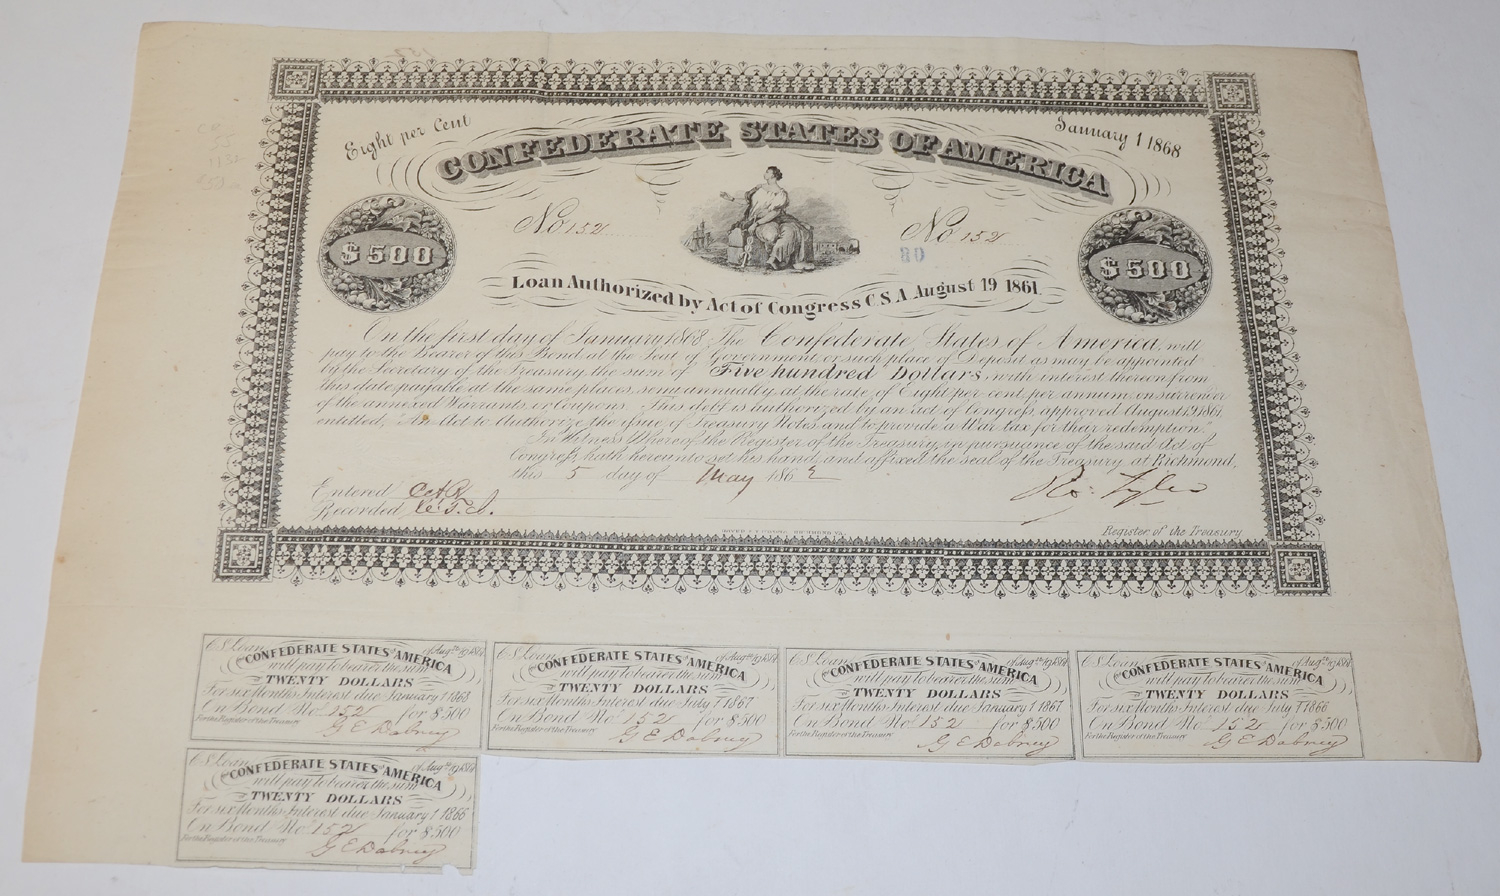 Eight per Cent
January 1 1868
CONFEDERATE STATES OF AMERICA
$500
No 152
No 152
80
$500
Loan Authorized by Act of Congress C.S.A August 19 1861
On the first day of January 1868 The Confederate States of America, will
pay to the Bearer of this Bond at the Seat of Government, or such place of Deposit as may be appointed
by the Secretary of the Treasury the sum of Five hundred Dollars, with interest thereon from
this date, payable at the same places, semi annually, at the rate of Eight per cent. per annum, on surrender
of the annexed Warrants or Coupons. This debt is authorized by an act of Congress, approved August 19, 1861,
entitled, "An Act to Authorize the issue of Treasury Notes, and to provide a War tax for their redemption."
In Witness Whereof the Register of the Treasury, in pursuance of the said Act of
Congress, hath hereunto set his hand, and affixed the seal of the Treasury at Richmond,
this 5 day of May 1862
Entered
Recorded
Ro: Tyler
Register of the Treasury
CS Loan of Augst 19 1861
The CONFEDERATE STATES OF AMERICA
will pay to bearer the sum
TWENTY DOLLARS
For six Months Interest due January 1 1868
On Bond No. 152 for $500
For the Register of the Treasury
G E Dabney
CS Loan of Augst 19 1861
The CONFEDERATE STATES OF AMERICA
will pay to bearer the sum
TWENTY DOLLARS
For six Months Interest due July 1 1867
On Bond No. 152 for $500
For the Register of the Treasury
G E Dabney
CS Loan of Augst 19 1861
The CONFEDERATE STATES OF AMERICA
will pay to bearer the sum
TWENTY DOLLARS
For six Months Interest due January 1 1867
On Bond No. 152 for $500
For the Register of the Treasury
G E Dabney
CS Loan of Augst 19 1861
The CONFEDERATE STATES OF AMERICA
will pay to bearer the sum
TWENTY DOLLARS
For six Months Interest due July 1 1866
On Bond No. 152 for $500
For the Register of the Treasury
G E Dabney
CS Loan of Augst 19 1861
The CONFEDERATE STATES OF AMERICA
will pay to bearer the sum
TWENTY DOLLARS
For six Months Interest due January 1 1866
On Bond No. 152 for $500
For the Register of the Treasury
G E Dabney